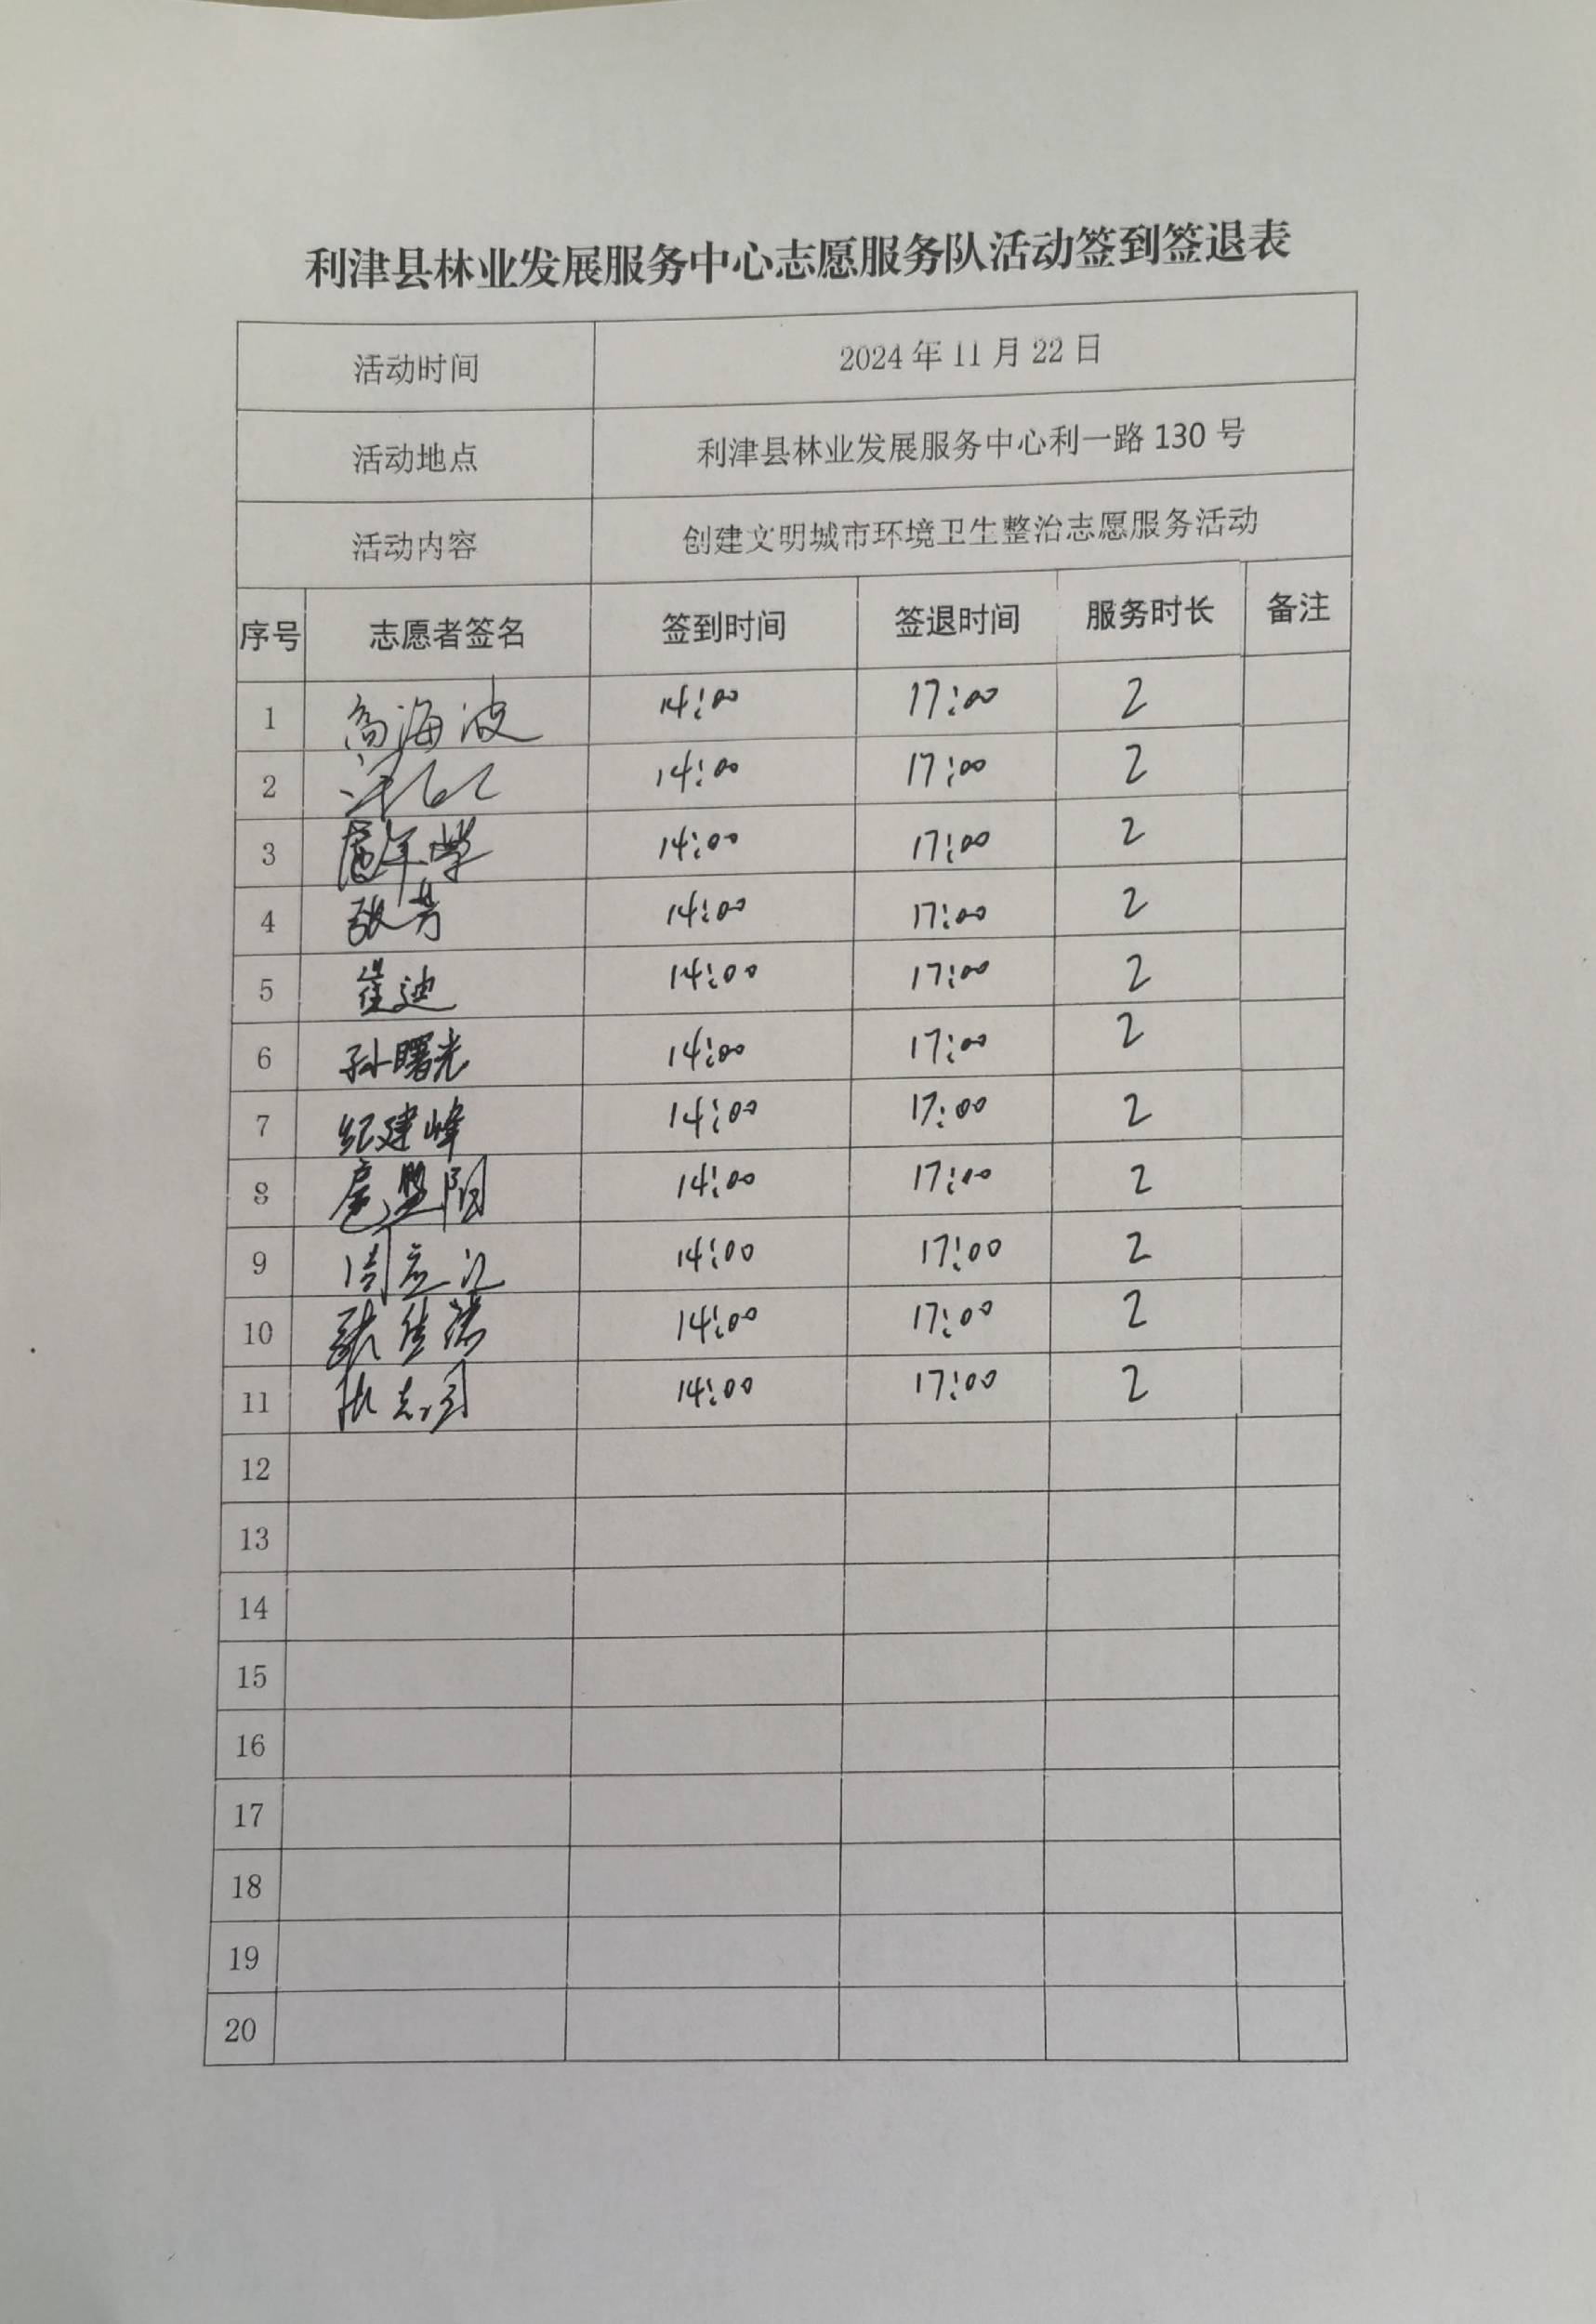 利津县林业发展服务中心志愿服务队活动签到签退表
活动时间 2024年11月22日
活动地点 利津县林业发展服务中心利一路130号
活动内容 创建文明城市环境卫生整治志愿服务活动
序号 志愿者签名 签到时间 签退时间 服务时长 备注
1 高海波 14:00 17:00 2
2 14:00 17:00 2
3 14:00 17:00 2
4 张芳 14:00 17:00 2
5 崔迪 14:00 17:00 2
6 孙曙光 14:00 17:00 2
7 纪建峰 14:00 17:00 2
8 14:00 17:00 2
9 14:00 17:00 2
10 14:00 17:00 2
11 14:00 17:00 2
12
13
14
15
16
17
18
19
20